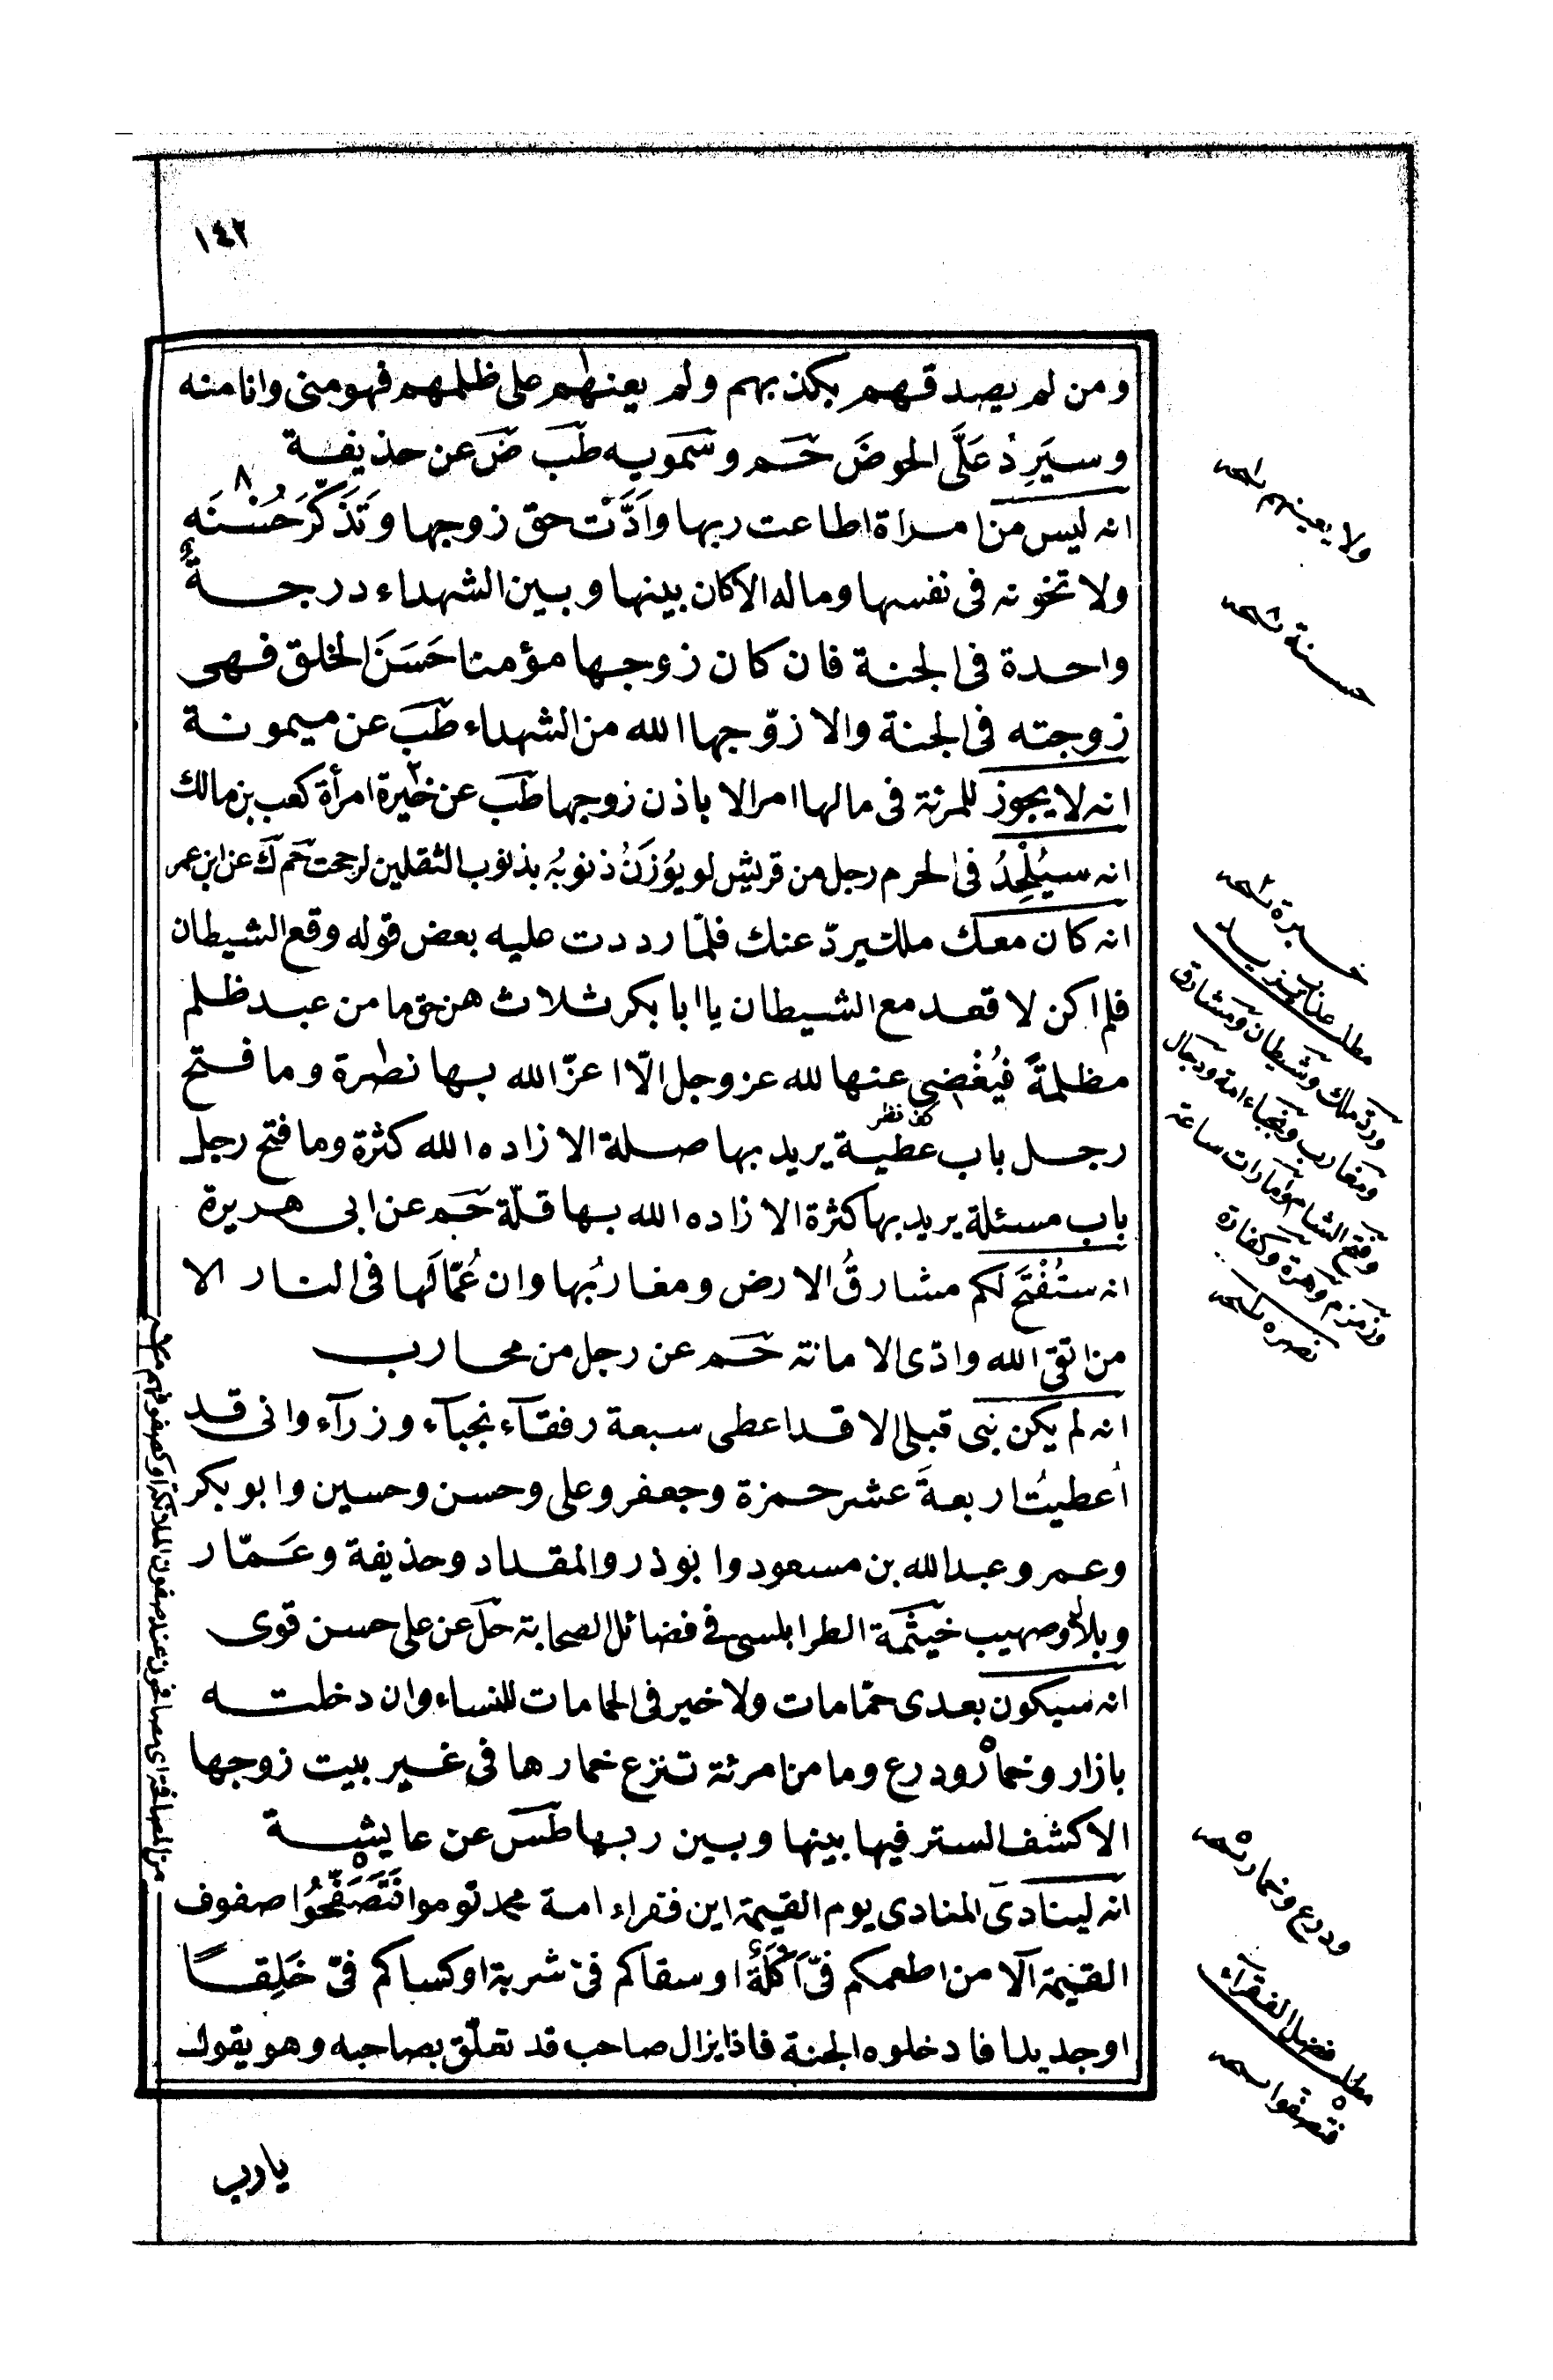 ١٤٢
ومن لم يصدقهم بكذبهم ولم يعنهم على ظلمهم فهو مني وانا منه
وسيَرِدُ عَلَىَّ الحوضَ حَم وسَمويه طَبَ ضَ عن حذيفة
انه ليس من امراة اطاعت ربها وادَّت حق زوجها وتَذَكَّرَ حُسْنَه
ولا تخونه فى نفسها وماله الا كان بينها وبين الشهداء درجةٌ
واحدة فى الجنة فان كان زوجها مؤمنا حَسَنَ الخلق فهى
زوجته فى الجنة والا زوّجها الله من الشهداء طَبَ عن ميمونة
انه لا يجوز للمرئة فى مالها امر الا باذن زوجها طَبَ عن خيرة امرأة كعب بن مالك
انه سيُلْحِدُ فى الحرم رجل من قريش لو يُوزَنُ ذنوبُه بذنوب الثقلين لرجحت حَم كَ عن ابن عمر
انه كان معك ملك يردّ عنك فلمّا رددت عليه بعض قوله وقع الشيطان
فلم اكن لاقعد مع الشيطان يا ابا بكر ثلاث هن حق ما من عبد ظلم
مظلمةً فيُغْضِى عنها لله عز وجل الّا اعزّ الله بها نصره وما فتح
رجل باب عطية يريد بها صلة الا زاده الله كثرة وما فتح رجل
باب مسئلة يريد بها كثرة الا زاده الله بها قلّة حَم عن ابى هريرة
انه ستُفْتَح لكم مشارقُ الارض ومغاربُها وان عُمّالَها فى النار الا
من اتقى الله وادّى الامانة حَم عن رجل من محارب
انه لم يكن نبى قبلى الا قد اعطى سبعة رفقآء نجبآء وزرآء وانى قد
اُعطيتُ اربعةَ عشر حمزة وجعفر وعلى وحسن وحسين وابو بكر
وعمر وعبد الله بن مسعود وابوذر والمقداد وحذيفة وعَمّار
وبلال وصهيب خيثمة الطرابلسى فى فضائل الصحابة حَلَ عن على حسن قوى
انه سيكون بعدى حمّامات ولا خير فى الحمامات للنساء وان دخلته
بازار وخمار ودرع وما من امرئة تنزع خمارها فى غير بيت زوجها
الا كشف الستر فيها بينها وبين ربها طَسَ عن عايشة
انه لينادى المنادى يوم القيمة اين فقراء امة محمد قوموا فَتَصَفَّحُوا صفوف
القيمة اَلا من اطعمكم فىّ اَكْلَةً او سقاكم فىّ شربة او كساكم فىّ خَلِقًا
او جديدا فادخلوه الجنة فاذا يزال صاحب قد تعلّق بصاحبه وهو يقول
يارب
ولا يعينهم نسخه
حسنة نسخه
خيرة نسخه
ورد ملك وشيطان ومشارق
ومغارب ونجباء امة ودجال
وفتح الشام وامارات ساعة
وزمزم وهرة وكفارة
نصره نسخه
ودرع وخمار نسخه
مطلب فضل الفقراء
فتصفحوا نسخه